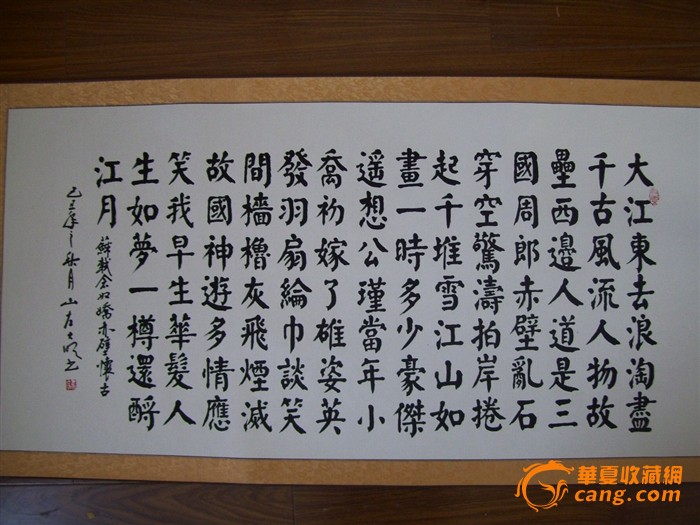 大江東去浪淘盡
千古風流人物故
壘西邊人道是三
國周郎赤壁亂石
穿空驚濤拍岸捲
起千堆雪江山如
畫一時多少豪傑
遥想公瑾當年小
喬初嫁了雄姿英
發羽扇綸巾談笑
間檣櫓灰飛煙滅
故國神遊多情應
笑我早生華髮人
生如夢一樽還酹
江月
蘇軾念奴嬌赤壁懷古
己丑年之秋月山左
華夏收藏網
cang.com